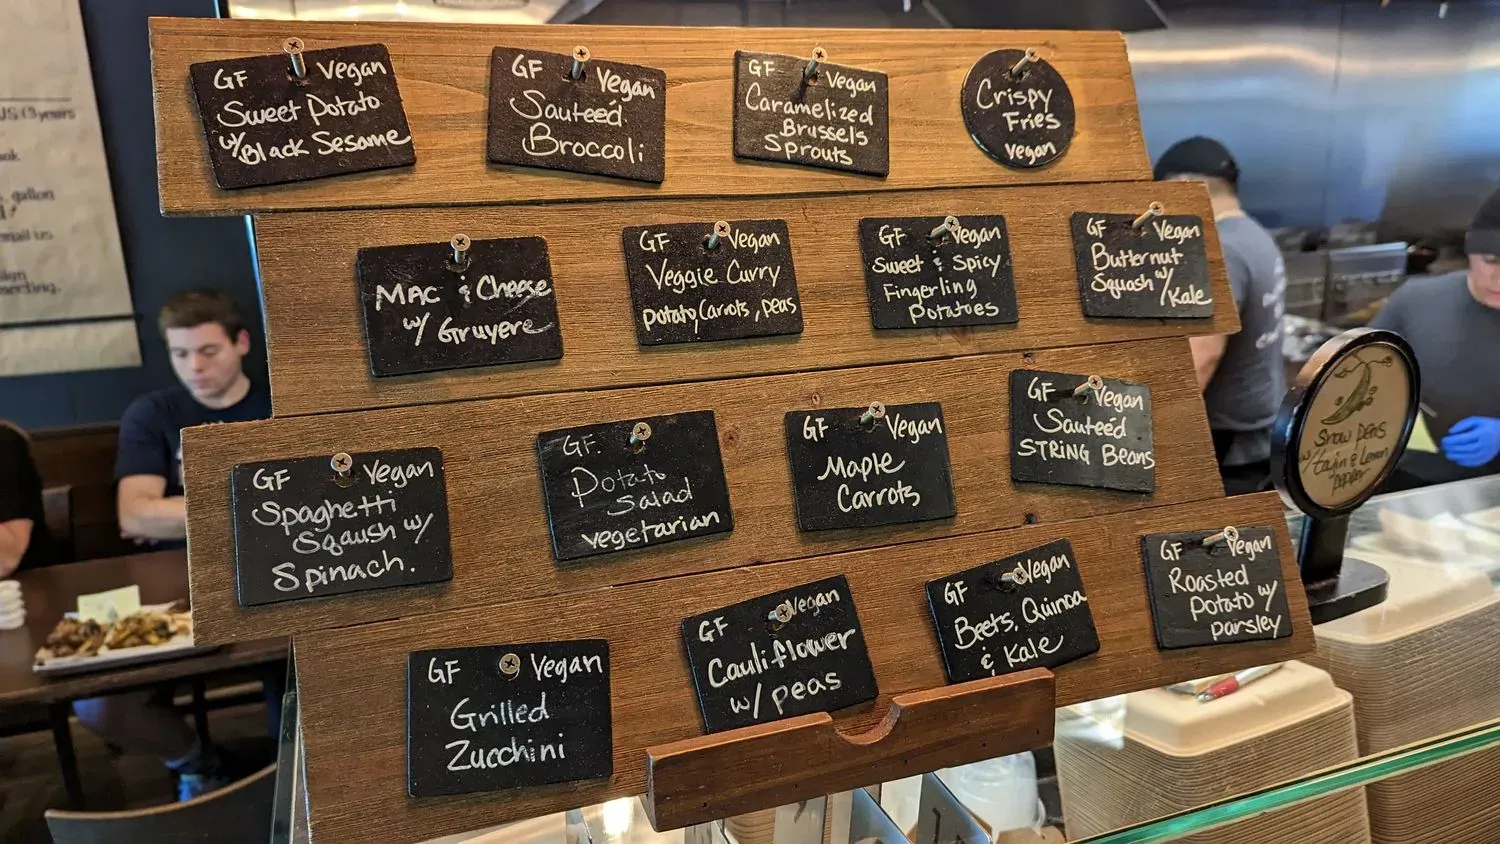 JS (3 years
gallon
email us
GF Vegan
Sweet Potato
w/Black Sesame
GF Vegan
Sauteéd
Broccoli
GF Vegan
Caramelized
Brussels
Sprouts
Crispy
Fries
vegan
Mac & Cheese
w/ Gruyere
GF Vegan
Veggie Curry
potato, Carrots, peas
GF Vegan
Sweet & Spicy
Fingerling
Potatoes
GF Vegan
Butternut
Squash w/
Kale
GF Vegan
Spaghetti
Sqaush w/
Spinach.
GF.
Potato
Salad
vegetarian
GF Vegan
Maple
Carrots
GF Vegan
Sauteéd
STRING Beans
GF Vegan
Grilled
Zucchini
GF Vegan
Cauliflower
w/ peas
GF Vegan
Beets, Quinoa
& Kale
GF Vegan
Roasted
Potato w/
parsley
Snow Peas
w/ tajin & Lemon
Pepper